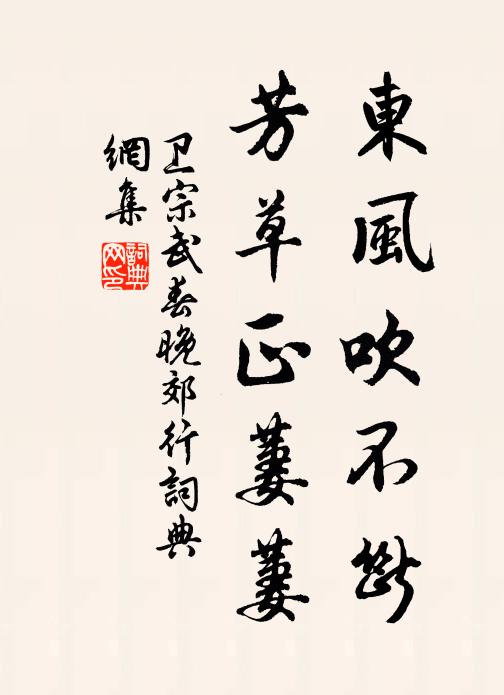 東風吹不斷
芳草正萋萋
卫宗武春晚郊行詞典
網集
詞典
网印